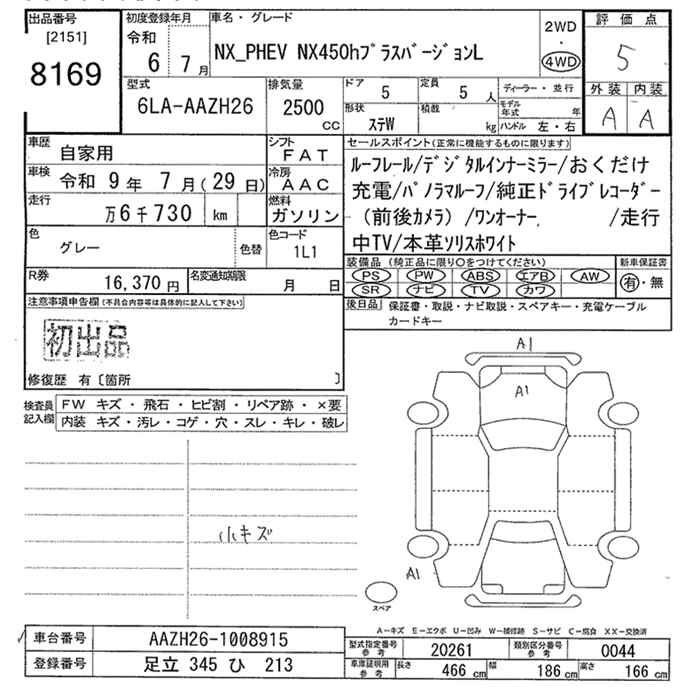 出品番号
[2151]
8169
初度登録年月
令和
6 7月
車名・グレード
NX_PHEV NX450hプラスバージョンL
2WD
・
4WD
評価点
5
外装 内装
A A
型式
6LA-AAZH26
排気量
2500
CC
ドア 5
定員 5人
ディーラー・並行
形状 ステW
積載 kg
モデル年式 年
ハンドル 左・右
車歴 自家用
シフト FAT
車検 令和 9年 7月(29日)
冷房 AAC
走行 万6千730 km
燃料 ガソリン
色 グレー 色替
色コード 1L1
R券 16,370円
名変通知期限 月 日
セールスポイント(正常に機能するものに限ります)
ルーフレール/デジタルインナーミラー/おくだけ
充電/パノラマルーフ/純正ドライブレコーダー
(前後カメラ)/ワンオーナー /走行
中TV/本革ソリスホワイト
装備品(純正品に限り○をつけてください)
PS PW ABS エアB AW
SR ナビ TV カワ
新車保証書
有・無
後日品 保証書・取説・ナビ取説・スペアキー・充電ケーブル
カードキー
注意事項申告欄(不具合内容等は具体的に記入して下さい)
初出品
修復歴 有〔箇所 〕
検査員記入欄
FW キズ・飛石・ヒビ割・リペア跡・×要
内装 キズ・汚レ・コゲ・穴・スレ・キレ・破レ
小キズ
A1
A1
A1
スペア
A-キズ E-エクボ U-凹み W-補修跡 S-サビ C-腐食 XX-交換済
車台番号 AAZH26-1008915
登録番号 足立 345 ひ 213
型式指定番号参考 20261
類別区分番号参考 0044
車庫証明用参考 長さ 466cm 幅 186cm 高さ 166cm